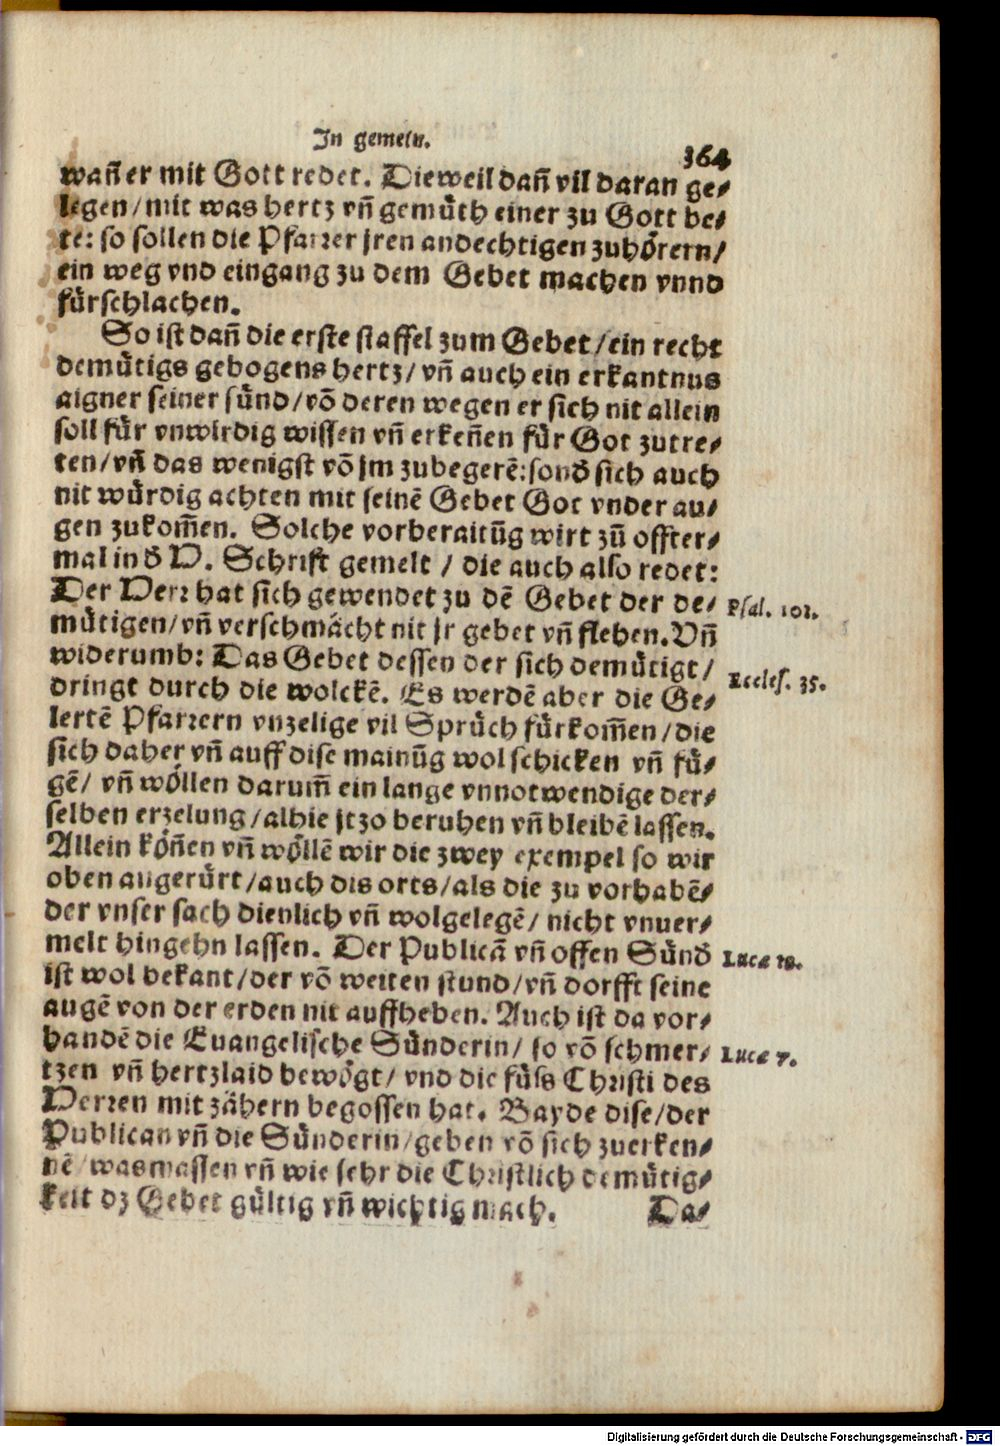 In gemein.
364
wañ er mit Gott redet. Dieweil dañ vil daran ge⸗
legen/mit was hertz vñ gemüth einer zu Gott be⸗
te: so sollen die Pfarrer jren andechtigen zuhörern/
ein weg vnd eingang zu dem Gebet machen vnnd
fürschlachen.
So ist dañ die erste staffel zum Gebet/ein recht
demütigs gebogens hertz/vñ auch ein erkantnus
aigner seiner sünd/võ deren wegen er sich nit allein
soll für vnwirdig wissen vñ erkeñen für Got zutre⸗
ten/vñ das wenigst võ jm zubegerẽ:sonð sich auch
nit würdig achten mit seinẽ Gebet Got vnder au⸗
gen zukom̃en. Solche vorberaitũg wirt zů offter⸗
mal in ð H. Schrift gemelt / die auch also redet:
Der Herr hat sich gewendet zu dẽ Gebet der de⸗
Psal. 101.
mütigen/vñ verschmächt nit jr gebet vñ flehen.Vñ
widerumb: Das Gebet dessen der sich demütigt/
Eccles. 35.
dringt durch die wolckẽ. Es werdẽ aber die Ge⸗
lertẽ Pfarrern vnzelige vil Sprüch fürkom̃en/die
sich daher vñ auff dise mainũg wol schicken vñ fü⸗
gẽ/ vñ wöllen darum̃ ein lange vnnotwendige der⸗
selben erzelung/alhie jtzo beruhen vñ bleibẽ lassen.
Allein köñen vñ wöllẽ wir die zwey exempel so wir
oben angerürt/auch dis orts/als die zu vorhabẽ⸗
der vnser sach dienlich vñ wolgelegẽ/ nicht vnuer⸗
melt hingehn lassen. Der Publicã vñ offen Sünð
Luce 18.
ist wol bekant/der võ weiten stund/vñ dorfft seine
augẽ von der erden nit auffheben. Auch ist da vor⸗
handẽ die Euangelische Sünderin/ so võ schmer⸗
Luce 7.
tzen vñ hertzlaid bewögt/ vnd die füss Christi des
Herren mit zähern begossen hat. Bayde dise/der
Publican vñ die Sünderin/geben võ sich zuerken⸗
nẽ/wasmassen vñ wie sehr die Christlich demütig⸗
keit dz Gebet gültig vñ wichtig mach.
Da⸗
Digitalisierung gefördert durch die Deutsche Forschungsgemeinschaft - DFG